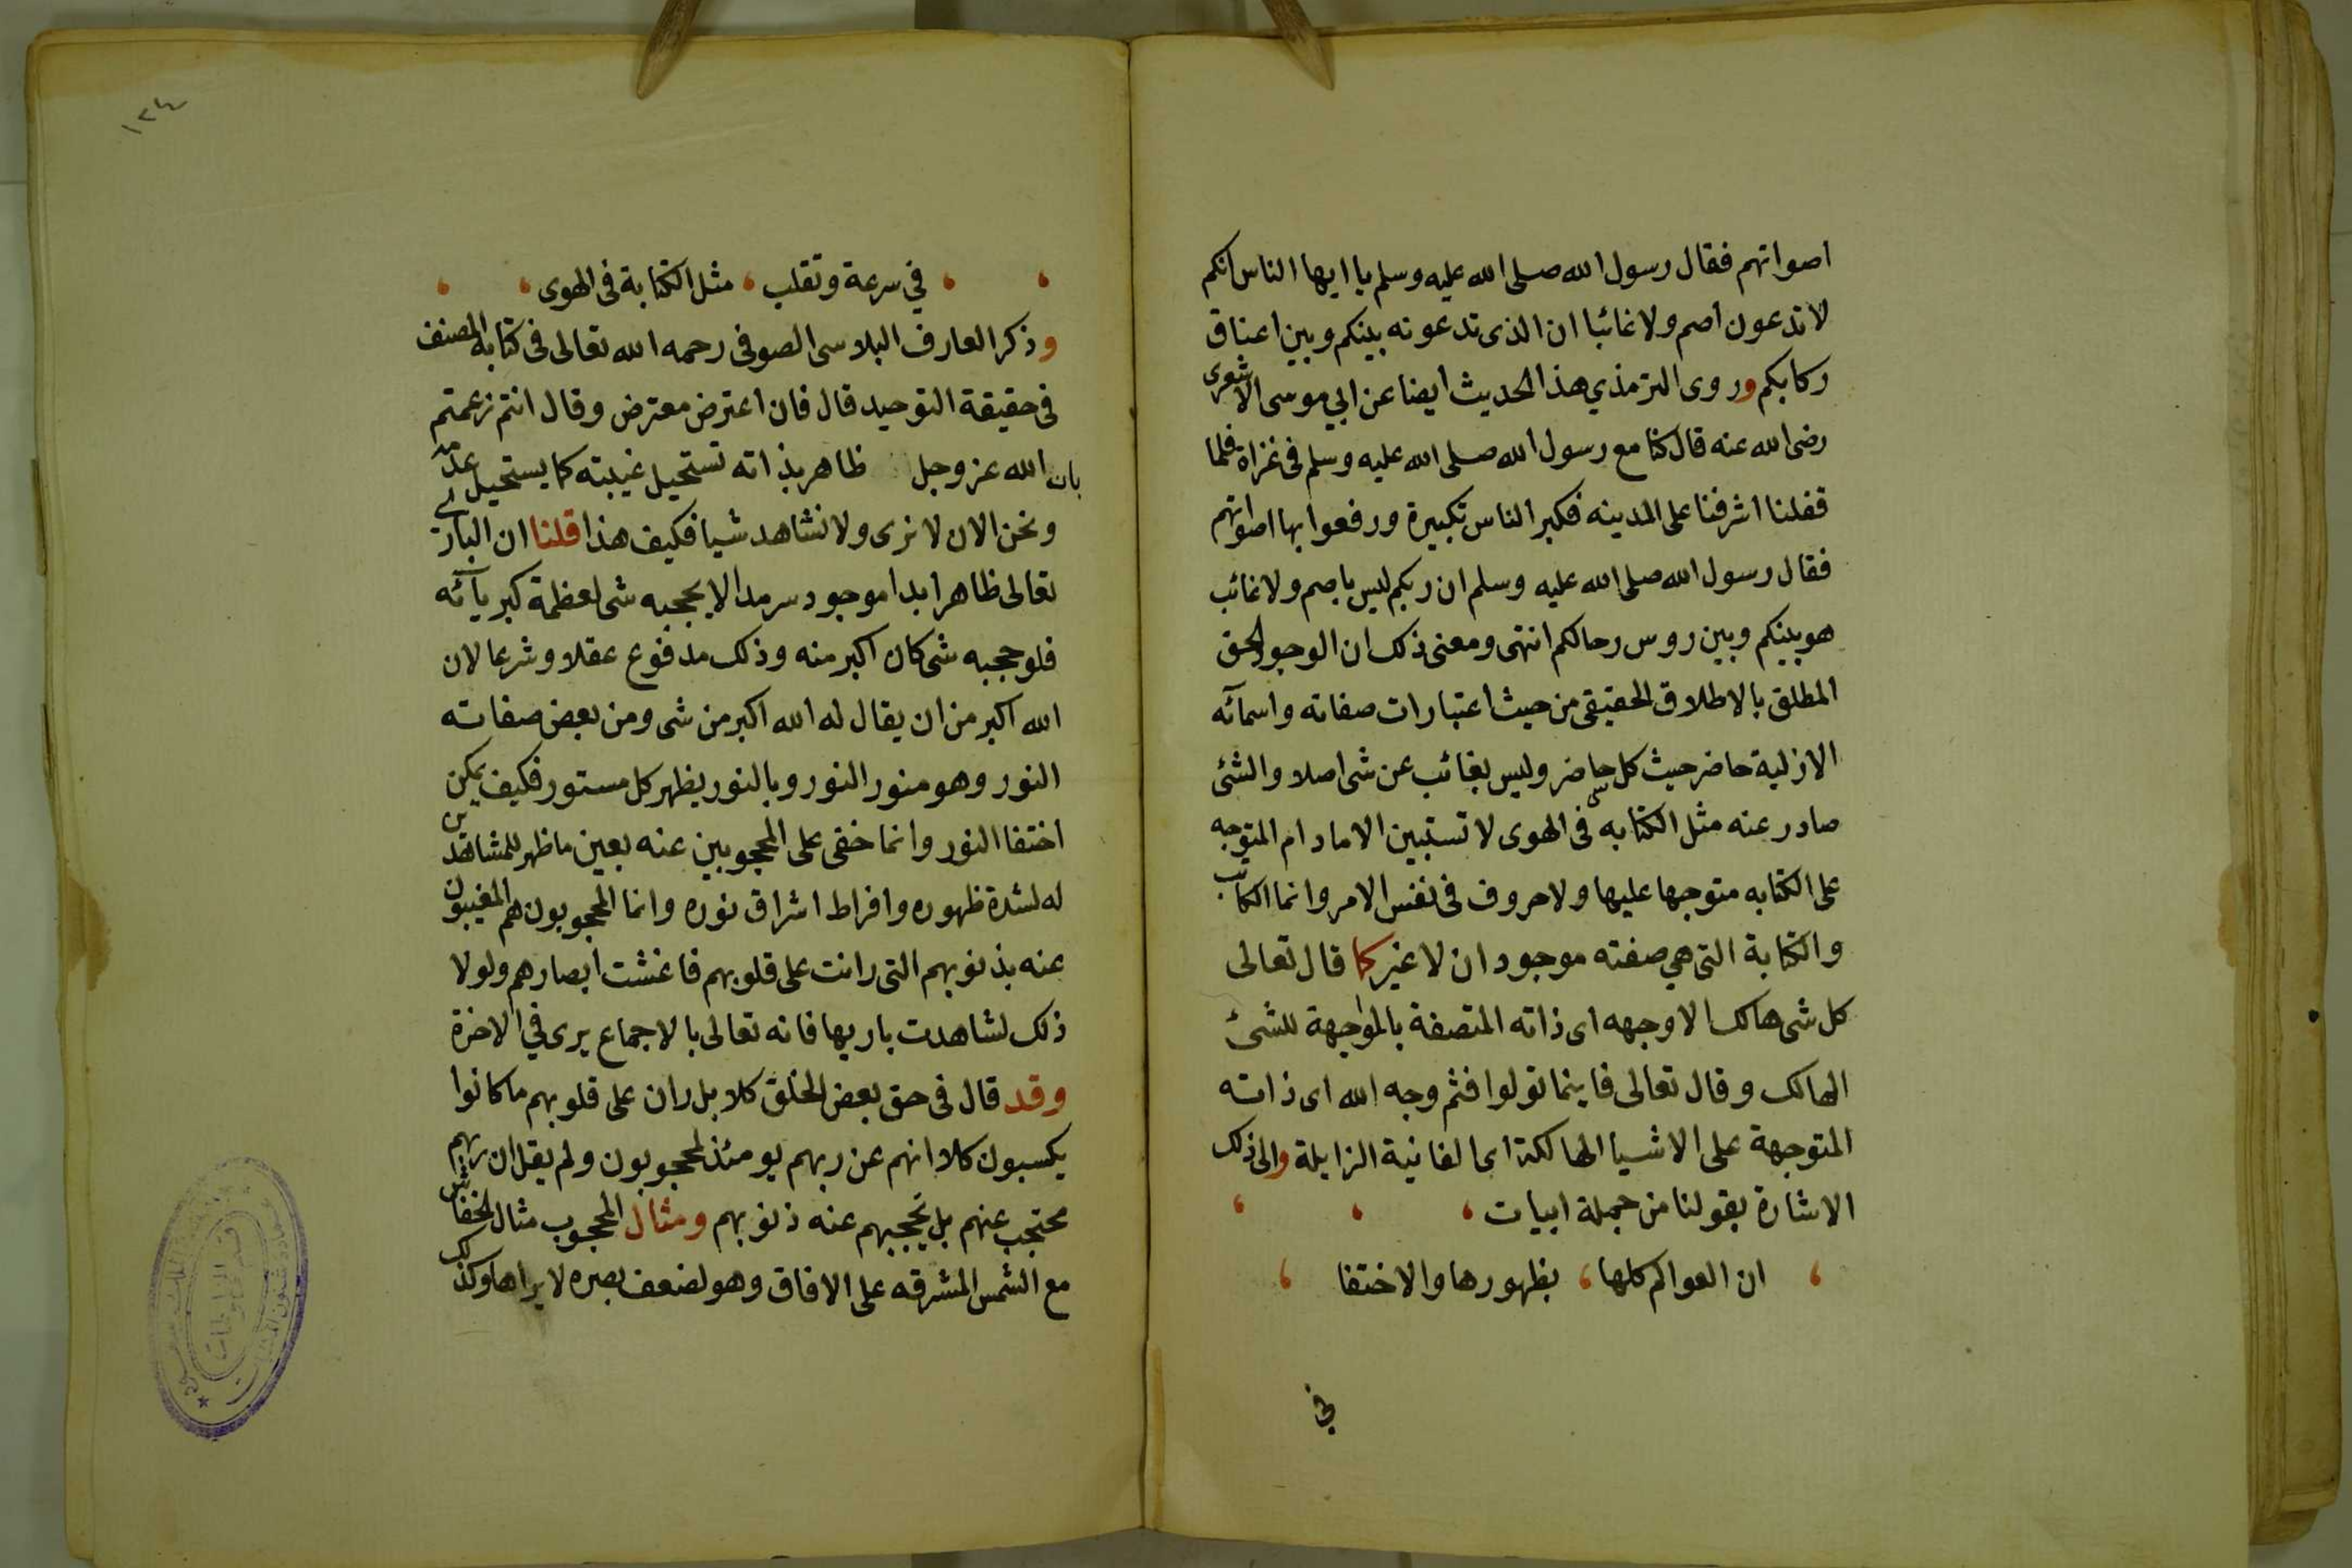 اصواتهم فقال رسول الله صلى الله عليه وسلم يا ايها الناس انكم
لا تدعون اصم ولا غائبا ان الذى تدعونه بينكم وبين اعناق
ركابكم وروى الترمذي هذا الحديث ايضا عن ابي موسى الاشعرى
رضى الله عنه قال كنا مع رسول الله صلى الله عليه وسلم فى غزاة فلما
قفلنا اشرفنا على المدينه فكبر الناس تكبيرة ورفعوا بها اصواتهم
فقال رسول الله صلى الله عليه وسلم ان ربكم ليس باصم ولا غائب
هو بينكم وبين روس رحالكم انتهى ومعنى ذلك ان الوجود الحق
المطلق بالاطلاق الحقيقى من حيث اعتبارات صفاته واسمآئه
الازلية حاضر حيث كل حاضر وليس بغائب عن شى اصلا والشئ
صادر عنه مثل الكتابه فى الهوى لا تستبين الا مادام المتوجه
على الكتابه متوجها عليها ولا حروف فى نفس الامر وانما الكاتب
والكتابة التى هي صفته موجودان لا غير كما قال تعالى
كل شى هالك الا وجهه اى ذاته المتصفة بالمواجهة للشئ
الهالك وقال تعالى فاينما تولوا فثم وجه الله اى ذاته
المتوجهة على الاشيا الهالكة اى الفانية الزايلة والى ذلك
الاشارة بقولنا من جملة ابيات
ان العوالم كلها ، بظهورها والاختفا
في
١٣٤
في سرعة وتقلب ، مثل الكتابة فى الهوى
وذكر العارف البلاسى الصوفى رحمه الله تعالى فى كتابه المصنف
فى حقيقة التوحيد قال فان اعترض معترض وقال انتم زعمتم
بان الله عز وجل ظاهر بذاته تستحيل غيبته كما يستحيل عدمه
ونحن الان لا نرى ولا نشاهد شيا فكيف هذا قلنا ان البارى
تعالى ظاهر ابدا موجود سرمدا لا يحجبه شى لعظمة كبريآئه
فلو حجبه شى كان اكبر منه وذلك مدفوع عقلا وشرعا لان
الله اكبر من ان يقال له الله اكبر من شى ومن بعض صفاته
النور وهو منور النور وبالنور يظهر كل مستور فكيف يمكن
اختفا النور وانما خفى على المحجوبين عنه بعين ما ظهر للمشاهدين
له لشدة ظهوره وافراط اشراق نوره وانما المحجوبون هم المغيبون
عنه بذنوبهم التى رانت على قلوبهم فاغشت ابصارهم ولولا
ذلك لشاهدت باريها فانه تعالى بالاجماع يرى في الاخرة
وقد قال فى حق بعض الخلق كلا بل ران على قلوبهم ما كانوا
يكسبون كلا انهم عن ربهم يومئذ لمحجوبون ولم يقل ان ربهم
محتجب عنهم بل تحجبهم عنه ذنوبهم ومثال المحجوب مثال الخفاش
مع الشمس المشرقه على الافاق وهو لضعف بصره لا يراها وكذلك
قسم المخطوطات